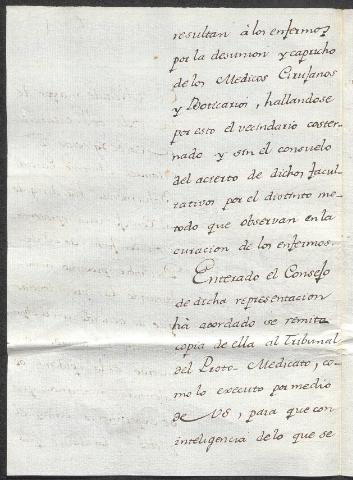 resultan á los enfermos
por la desunion y capricho
de los Medicos Cirujanos
y Boticarios, hallandose
por esto el vecindario conster-
nado y sin el consuelo
del acierto de dichos facul-
tativos por el distinto me-
todo que observan en la
curacion de los enfermos.
Enterado el Consejo
de dicha representacion
há acordado se remita
copia de ella al Tribunal
del Proto-Medicato, co-
mo lo executo por medio
de VS, para que con
inteligencia de lo que se